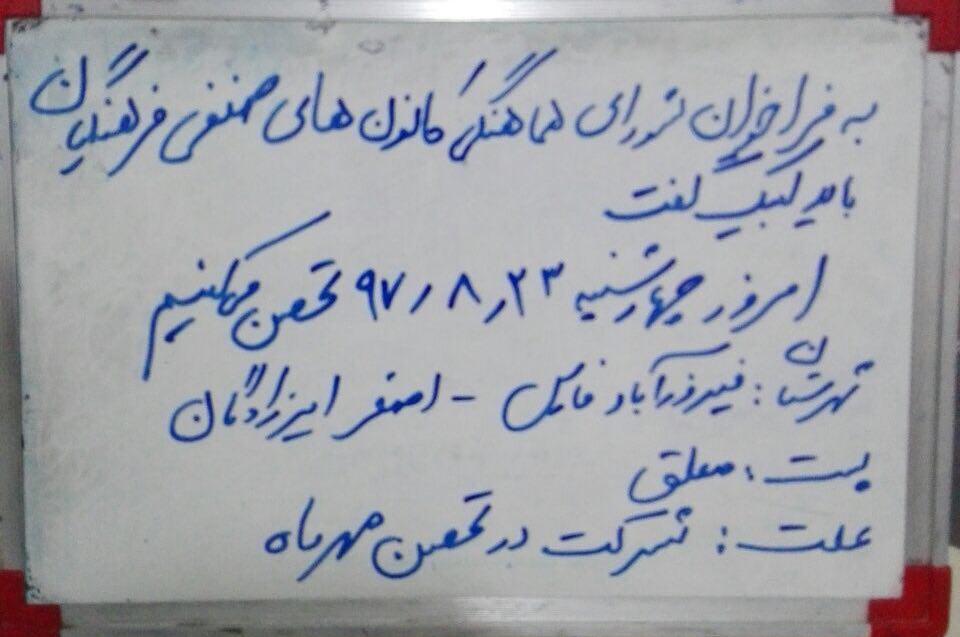 به فراخوان شورای هماهنگی کانون های صنفی فرهنگیان
باید لبیک گفت
امروز چهارشنبه ۹۷٫۸٫۲۳ تحصن میکنیم
شهرستان : فیروزآباد فارس - اصغر امیرزادگان
پست : معلق
علت : شرکت در تحصن مهرماه